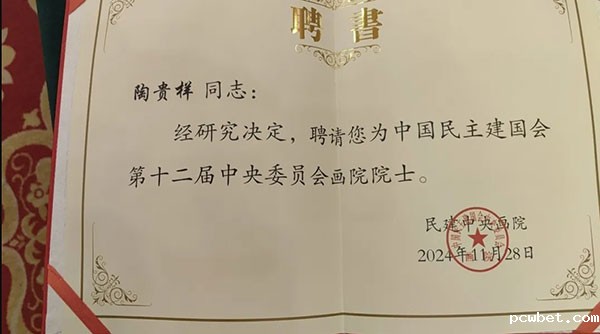 聘書
陶贵样 同志：
经研究决定，聘请您为中国民主建国会
第十二届中央委员会画院院士。
民建中央画院
2024年11月28日
pcwbet.com